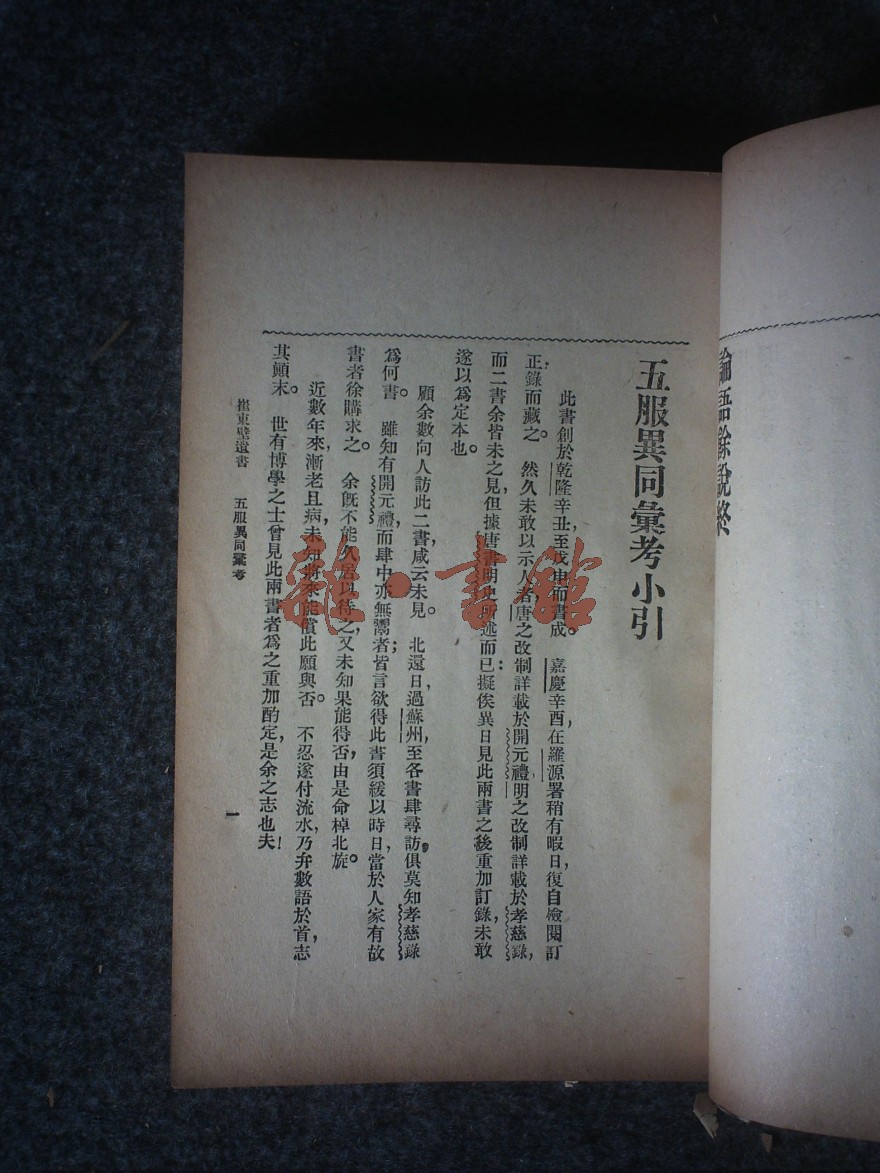 論語餘說終
五服異同彙考小引
此書創於乾隆辛丑,至戊申而書成。嘉慶辛酉,在羅源署稍有暇日,復自檢閱訂
正,錄而藏之。然久未敢以示人者,唐之改制詳載於開元禮,明之改制詳載於孝慈錄,
而二書余皆未之見,但據唐書明史所述而已;擬俟異日見此兩書之後重加訂錄,未敢
遂以爲定本也。
顧余數向人訪此二書,咸云未見。北還日,過蘇州,至各書肆尋訪,俱莫知孝慈錄
爲何書。雖知有開元禮,而肆中亦無鬻者;皆言欲得此書須緩以時日,當於人家有故
書者徐購求之。余旣不能久居以待之,又未知果能得否,由是命棹北旋。
近數年來,漸老且病,未知將來能償此願與否。不忍遂付流水,乃弁數語於首,志
其顛末。世有博學之士曾見此兩書者爲之重加酌定,是余之志也夫!
崔東壁遺書 五服異同彙考 一
雜·書館